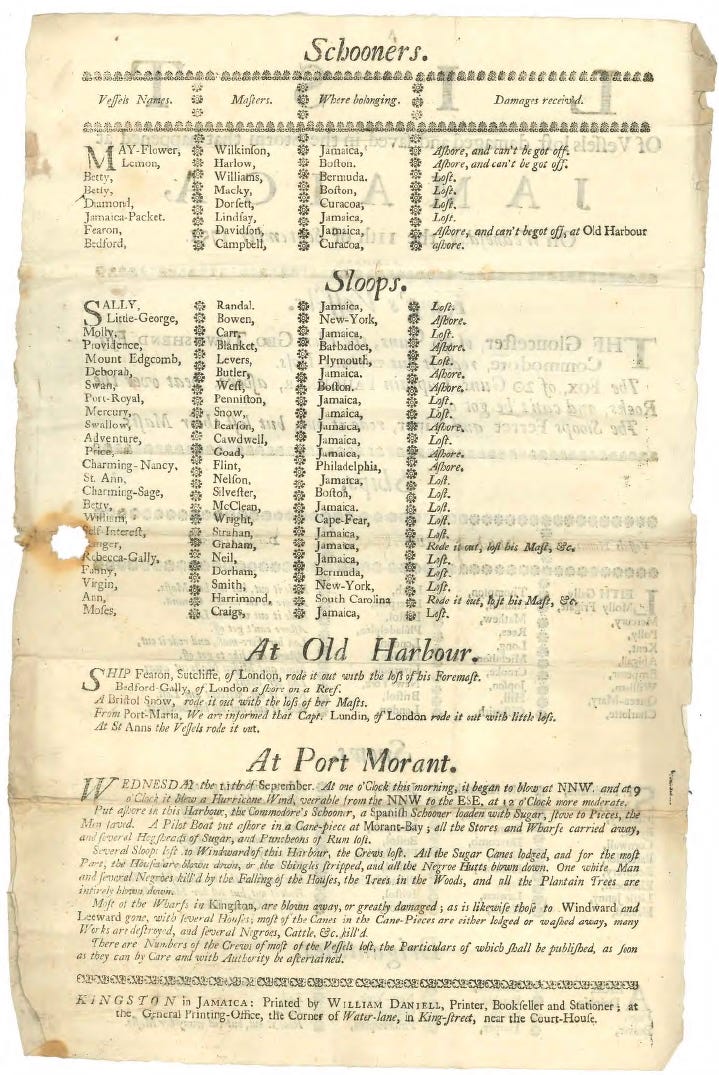 Schooners.
Veſſels Names. Maſters. Where belonging. Damages receiv'd.
MAY-Flower, Wilkinſon, Jamaica, Aſhore, and can't be got off.
Lemon, Harlow, Boſton. Aſhore, and can't be got off.
Betty, Williams, Bermuda. Loſt.
Betty, Macky, Boſton, Loſt.
Diamond, Dorſett, Curacoa, Loſt.
Jamaica-Packet. Lindſay, Jamaica, Loſt.
Fearon, Davidſon, Jamaica, Aſhore, and can't begot off, at Old Harbour
Bedford, Campbell, Curacoa, aſhore.
Sloops.
SALLY, Randal. Jamaica, Loſt.
Little-George, Bowen, New-York, Aſhore.
Molly, Carr, Jamaica, Loſt.
Providence, Blanket, Barbadoes, Aſhore.
Mount Edgcomb, Levers, Plymouth, Loſt.
Deborah, Butler, Jamaica. Aſhore.
Swan, Weſt, Boſton. Aſhore,
Port-Royal, Penniſton, Jamaica, Loſt.
Mercury, Snow, Jamaica, Loſt.
Swallow, Pearſon, Jamaica, Aſhore.
Adventure, Cawdwell, Jamaica, Loſt.
Price, Goad, Jamaica, Aſhore.
Charming-Nancy, Flint, Philadelphia, Aſhore.
St. Ann, Nelſon, Jamaica, Loſt.
Charming-Sage, Silveſter, Boſton, Loſt.
Betty, McClean, Jamaica. Loſt.
William, Wright, Cape-Fear, Loſt.
Self-Intereſt, Strahan, Jamaica, Loſt.
Graham, Jamaica, Rode it out, loſt his Maſt, &c.
Rebecca-Gally, Neil, Jamaica, Loſt.
Fanny, Dorham, Bermuda, Loſt.
Virgin, Smith, New-York, Loſt.
Ann, Harrimond, South Carolina Rode it out, loſt his Maſt, &c.
Moſes, Craigs, Jamaica, Loſt.
At Old Harbour.
SHIP Fearon, Sutcliffe, of London, rode it out with the loſs of his Foremaſt.
Bedford-Gally, of London aſhore on a Reef.
A Briſtol Snow, rode it out with the loſs of her Maſts.
From Port-Maria, We are informed that Capt. Lundin, of London rode it out with little loſs.
At St Anns the Veſſels rode it out.
At Port Morant.
WEDNESDAY the 11th of September. At one o'Clock this morning, it began to blow at NNW. and at 9
o'Clock it blew a Hurricane Wind, veerable from the NNW to the ESE, at 12 o'Clock more moderate.
Put aſhore in this Harbour, the Commodore's Schooner, a Spaniſh Schooner loaden with Sugar, ſtove to Pieces, the
Men ſaved. A Pilot Boat put aſhore in a Cane-piece at Morant-Bay; all the Stores and Wharfs carried away,
and ſeveral Hogſheads of Sugar, and Puncheons of Rum loſt.
Several Sloops loſt to Windward of this Harbour, the Crews loſt. All the Sugar Canes lodged, and for the moſt
Part, the Houſes are blown down, or the Shingles ſtripped, and all the Negroe Hutts blown down. One white Man
and ſeveral Negroes kill'd by the Falling of the Houſes, the Trees in the Woods, and all the Plantain Trees are
intirely blown down.
Moſt of the Wharfs in Kingſton, are blown away, or greatly damaged; as is likewiſe thoſe to Windward and
Leeward gone, with ſeveral Houſes; moſt of the Canes in the Cane-Pieces are either lodged or waſhed away, many
Works are deſtroy'd, and ſeveral Negroes, Cattle, &c. kill'd.
There are Numbers of the Crews of moſt of the Veſſels loſt, the Particulars of which ſhall be publiſhed, as ſoon
as they can by Care and with Authority be aſcertained.
KINGSTON in JAMAICA: Printed by WILLIAM DANIELL, Printer, Bookſeller and Stationer; at
the General Printing-Office, the Corner of Water-lane, in King-ſtreet, near the Court-Houſe.